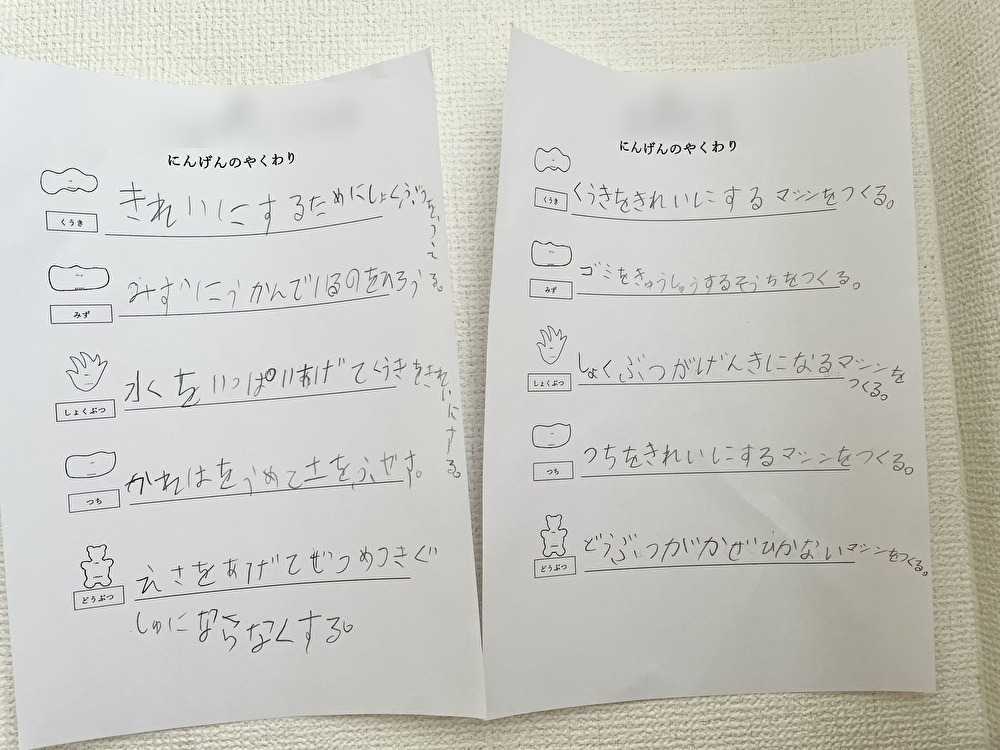 にんげんのやくわり
くうき
きれいにするためにしょくぶつをつかってる。
みず
みずにうかんでいるのをひろう
しょくぶつ
水くをいっぱいあげてくうきをきれいにする。
つち
かれはをうめて土をふやす。
どうぶつ
えさをあげてぜつめつきぐ
しゅにならなくする。
にんげんのやくわり
くうき
くうきをきれいにするマシンをつくる。
みず
ゴミをきゅうしゅうするそうちをつくる。
しょくぶつ
しょくぶつがげんきになるマシンを
つくる。
つち
つちをきれいにするマシンをつくる。
どうぶつ
どうぶつがかぜひかないマシンをつくる。